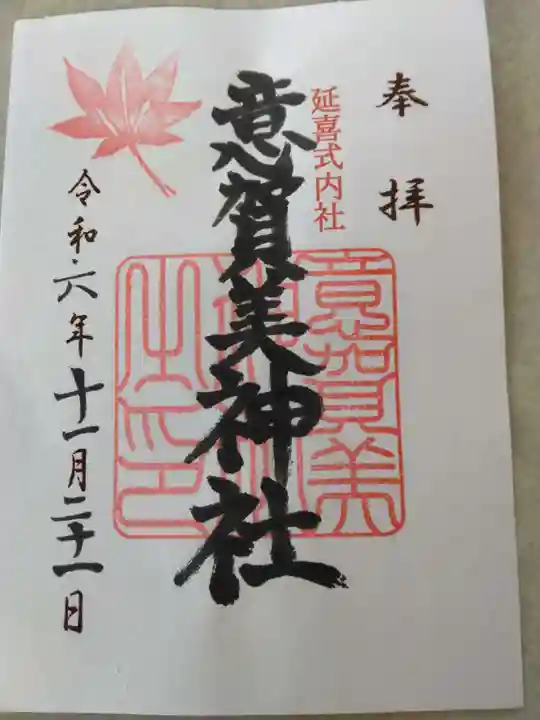 奉拝
延喜式内社
意賀美神社
意賀美
之印
令和六年十一月二十一日